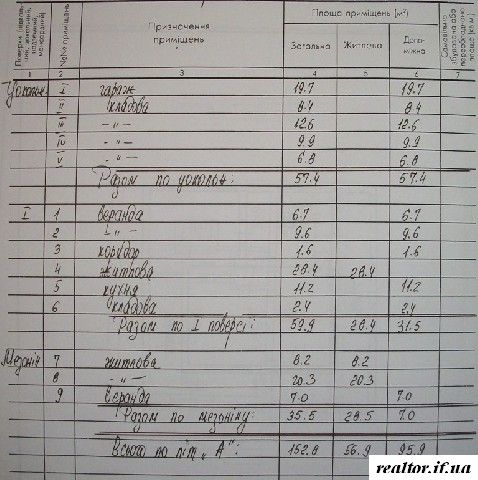 Призначення приміщень
Площа приміщень [м²]
Загальна Житлова Допо-міжна
№№ приміщень
1 2 3 4 5 6 7
I гараж 19.7 19.7
II кладова 8.4 8.4
III –"– 12.6 12.6
IV –"– 9.9 9.9
V –"– 6.8 6.8
Разом по 57.4 57.4
I 1 веранда 6.7 6.7
2 –"– 9.6 9.6
3 коридор 1.6 1.6
4 житлова 28.4 28.4
5 кухня 11.2 11.2
6 кладова 2.4 2.4
Разом по I поверсі: 59.9 28.4 31.5
Мезонін 7 житлова 8.2 8.2
8 –"– 20.3 20.3
9 Веранда 7.0 7.0
Разом по мезоніну: 35.5 28.5 7.0
Всього по літ „А": 152.8 56.9 95.9
realtor.if.ua